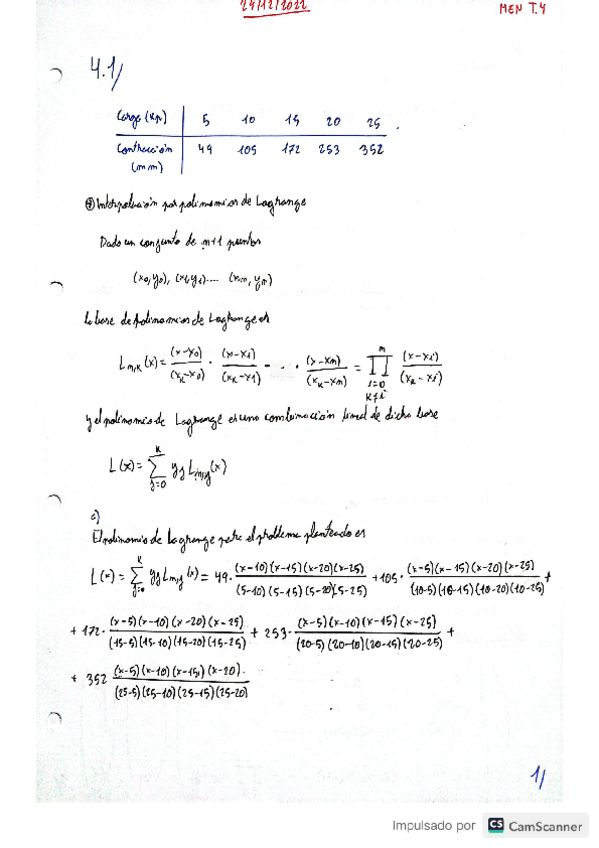 24/12/2022
MEN T.4
4.1/
Carga (Kp) 5 10 15 20 25
Contracción (mm) 49 105 172 253 352
Interpolación por polinomios de Lagrange
Dado un conjunto de m+1 puntos
(x0,y0), (x1,y1).... (xm, ym)
la base de polinomios de Lagrange es
Lm,k (x) = (x-x0)/(xk-x0) · (x-x1)/(xk-x1) - · · (x-xm)/(xk-xm) = ∏ m i=0 k≠i (x-xi)/(xk-xi)
y el polinomio de Lagrange es una combinación lineal de dicha base
L(x) = ∑ k j=0 yj Lm,j(x)
a)
El polinomio de Lagrange para el problema planteado es
L(x) = ∑ k j=0 yj Lm,j (x) = 49· (x-10)(x-15)(x-20)(x-25)/(5-10)(5-15)(5-20)(5-25) + 105· (x-5)(x-15)(x-20)(x-25)/(10-5)(10-15)(10-20)(10-25) +
+ 172· (x-5)(x-10)(x-20)(x-25)/(15-5)(15-10)(15-20)(15-25) + 253· (x-5)(x-10)(x-15)(x-25)/(20-5)(20-10)(20-15)(20-25) +
+ 352 (x-5)(x-10)(x-15)(x-20)/(25-5)(25-10)(25-15)(25-20)
1/
Impulsado por CS CamScanner